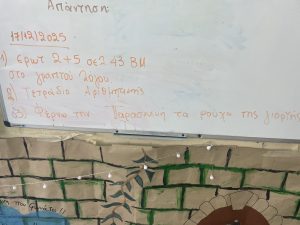 Απάντηση:
17/12/2025
1) Ερωτ 2+5 σελ 43 ΒΜ
στο γραπτού λόγου
2) Τετράδιο Αριθμητικής
3) Φέρνω την Παρασκευή τα ρούχα της γιορτής